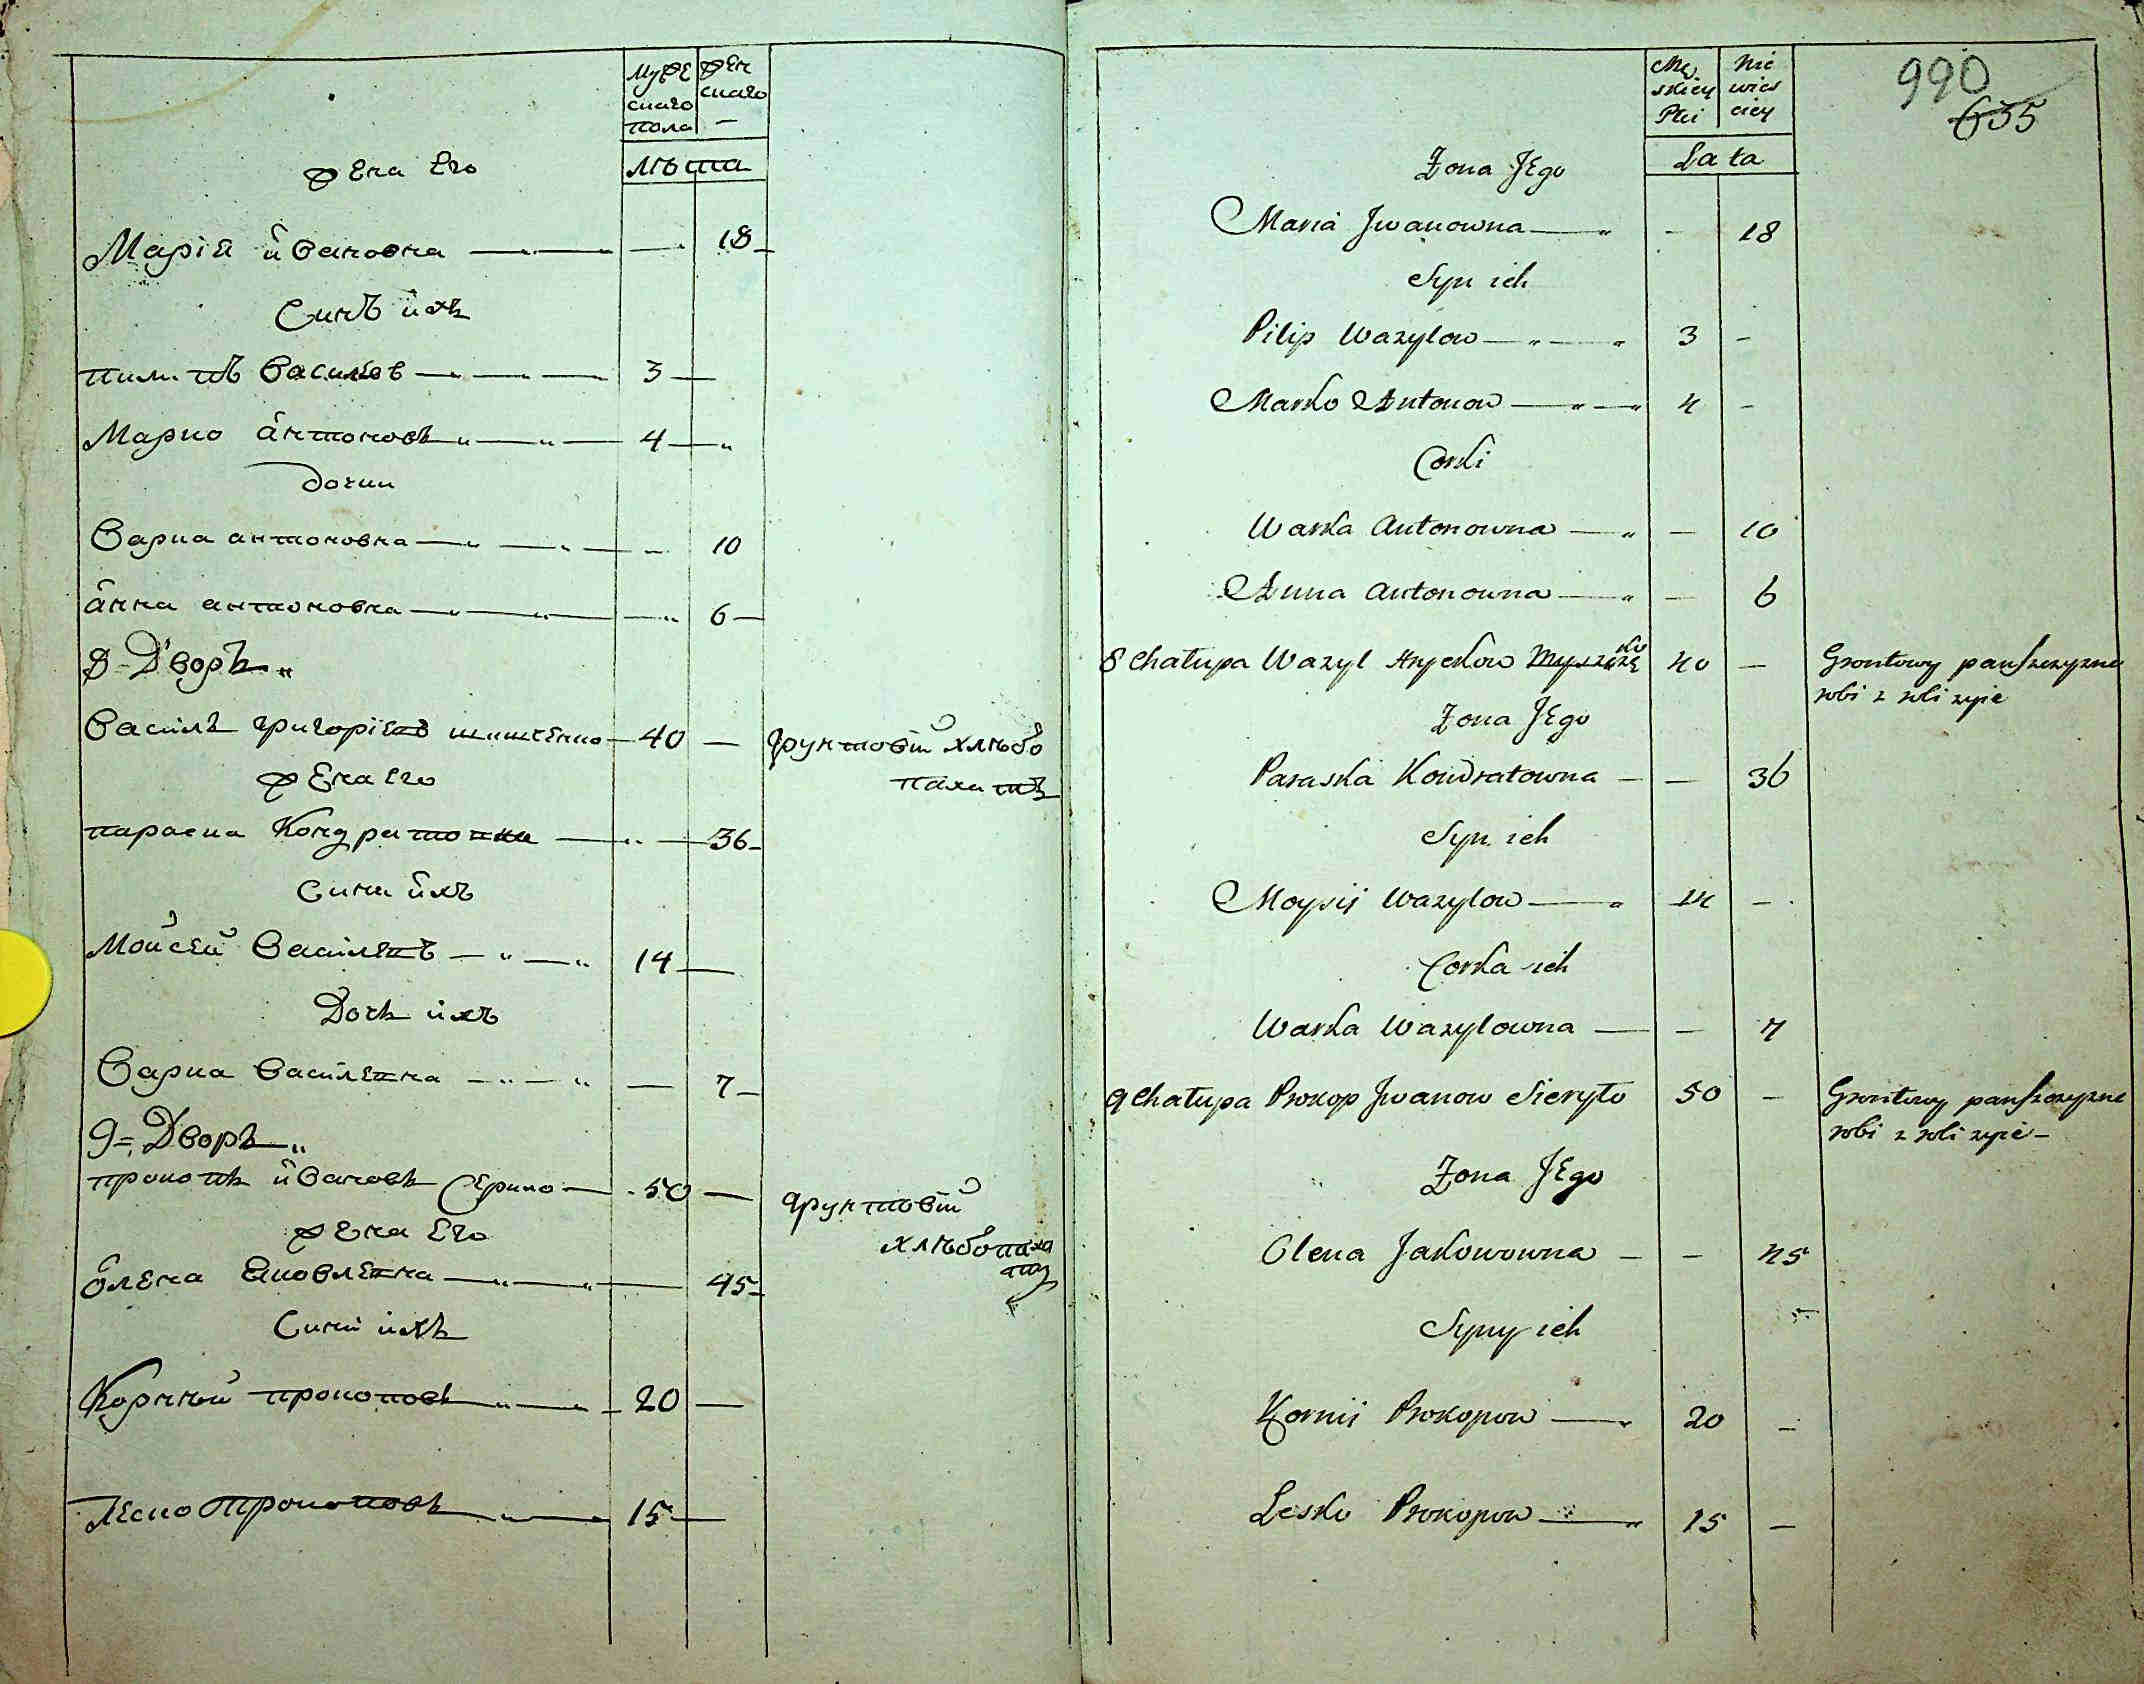 Муже
скаго
пола
жен
скаго
лѣта
жена Его
Марія ивановна 18
Синъ ихъ
пилипъ Василов 3
Марко антоновъ 4
дочки
Варка антоновна 10
анна антоновна 6
8 Дворъ
Василь григоріевъ 40 грунтовій хлѣбо
пахатъ
жена Его
параска Кондратовна 36
Сини ихъ
Мойсей Василевъ 14
Дочь ихъ
Варка Василевна 7
9 = Дворъ
прокопъ ивановъ Серико 50 грунтовій
хлѣбопаха
тъ
жена Его
олена Яковлевна 45
Сини ихъ
Корнѣй прокоповъ 20
Леско прокоповъ 15
990
635
Mę
skiey
Płci
Nie
wieś
ciey
Lata
Zona JEgo
Maria Jwanowna - 18
Syn ich
Pilip Wazylow 3 -
Marko Antonow 4 -
Corki
Warka Antonowna - 10
Anna Antonowna - 6
8 Chałupa Wazyl Hryckow 40 - Grontowy panszczyzne
robi z roli zyie
Zona JEgo
Paraska Kondratowna - 36
Syn ich
Moysij Wazylow 14 -
Corka ich
Warka Wazylowna - 7
9 Chałupa Prokop Jwanow Sieryko 50 - Grontowy panszczyzne
robi z roli zyie
Zona JEgo
Olena Jakowowna - 45
Syny ich
Kornij Prokopow 20 -
Lesko Prokopow 15 -